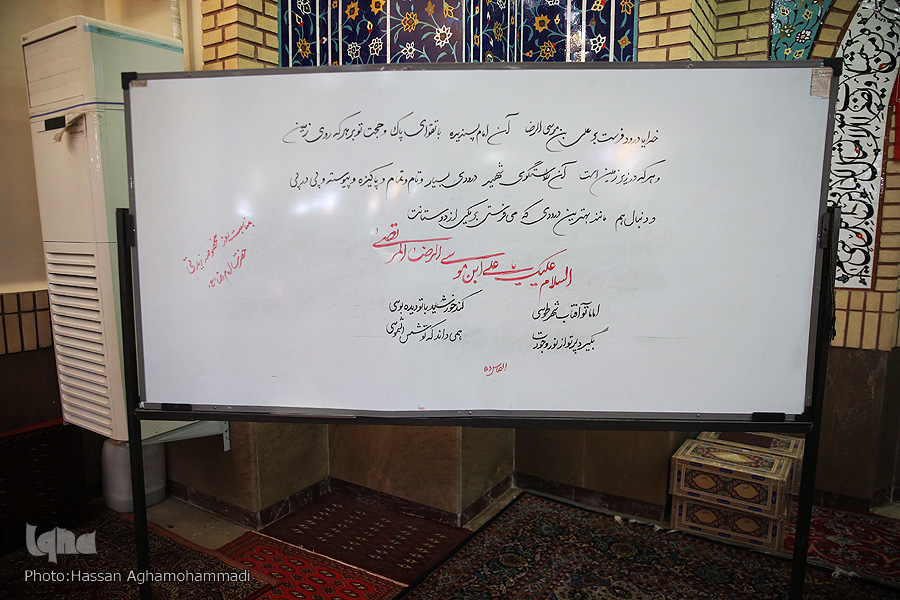 خدایا درود فرست بر علی بن موسی الرضا آن امام پسندیده با تقوای پاک و حجت تو بر هر که روی زمین
و هر که در زیر زمین است آن راستگوی شهید درودی بسیار و تام و تمام و پاکیزه و پیوسته و پی در پی
و دنبال هم مانند بهترین درودی که می فرستی بر یکی از دوستانت
السلام علیک یا علی ابن موسی الرضا المرتضی
اماما تو آفتاب شهر طوسی کند خورشید با تو دیده بوسی
بگیرد پرتو از نور وجودت همی داند که تو شمس الشموسی
التماس دعا
بمناسبت روز مخصوص زیارتی
حضرت امام رضا
iqna
Photo:Hassan Aghamohammadi